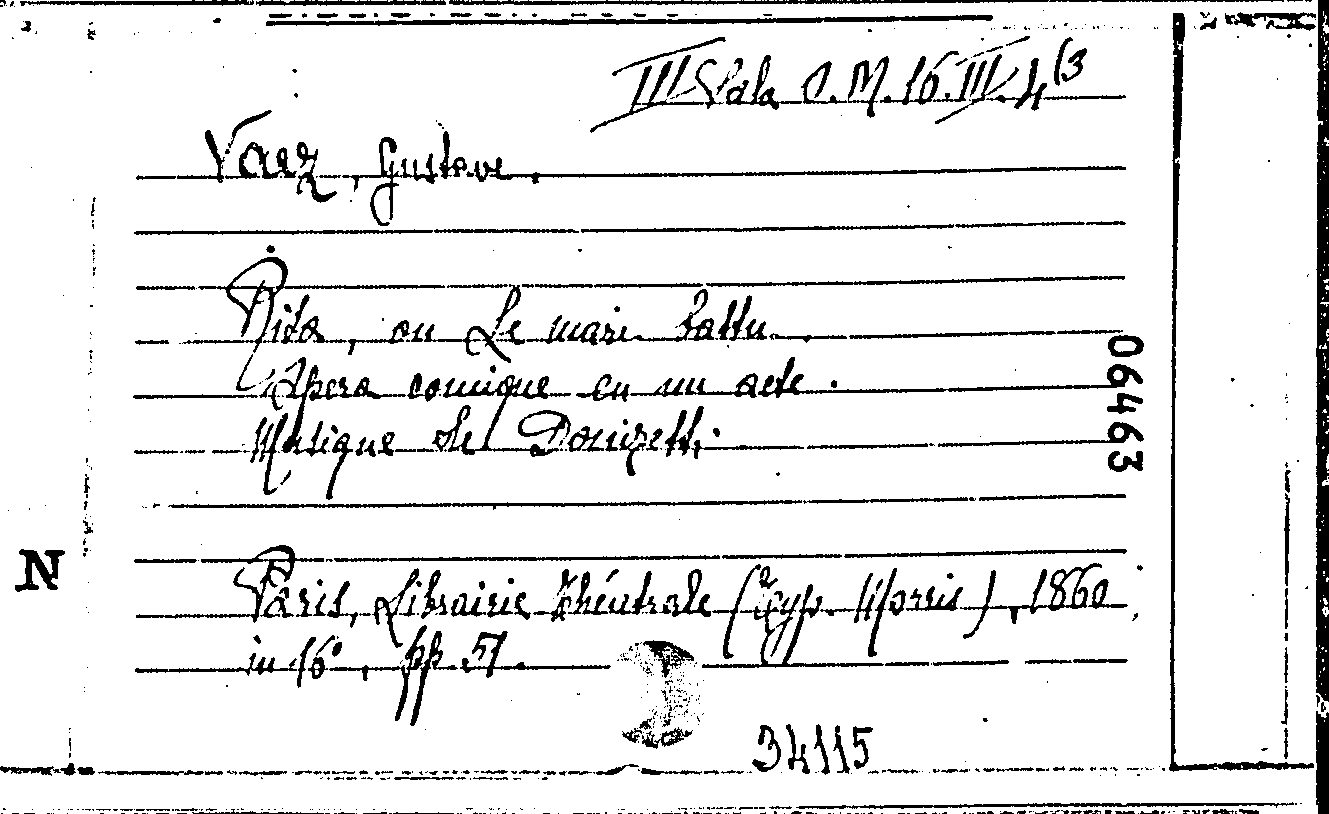 III Sala O.M.16.III.4(3
Vaez, Gustave.
Rita, ou Le mari battu.
Opera comique en un acte.
Musique de Donizetti.
06463
N
Paris, Librairie théatrale (Typ. Morris), 1860,
in 16°, pp. 51.
34115